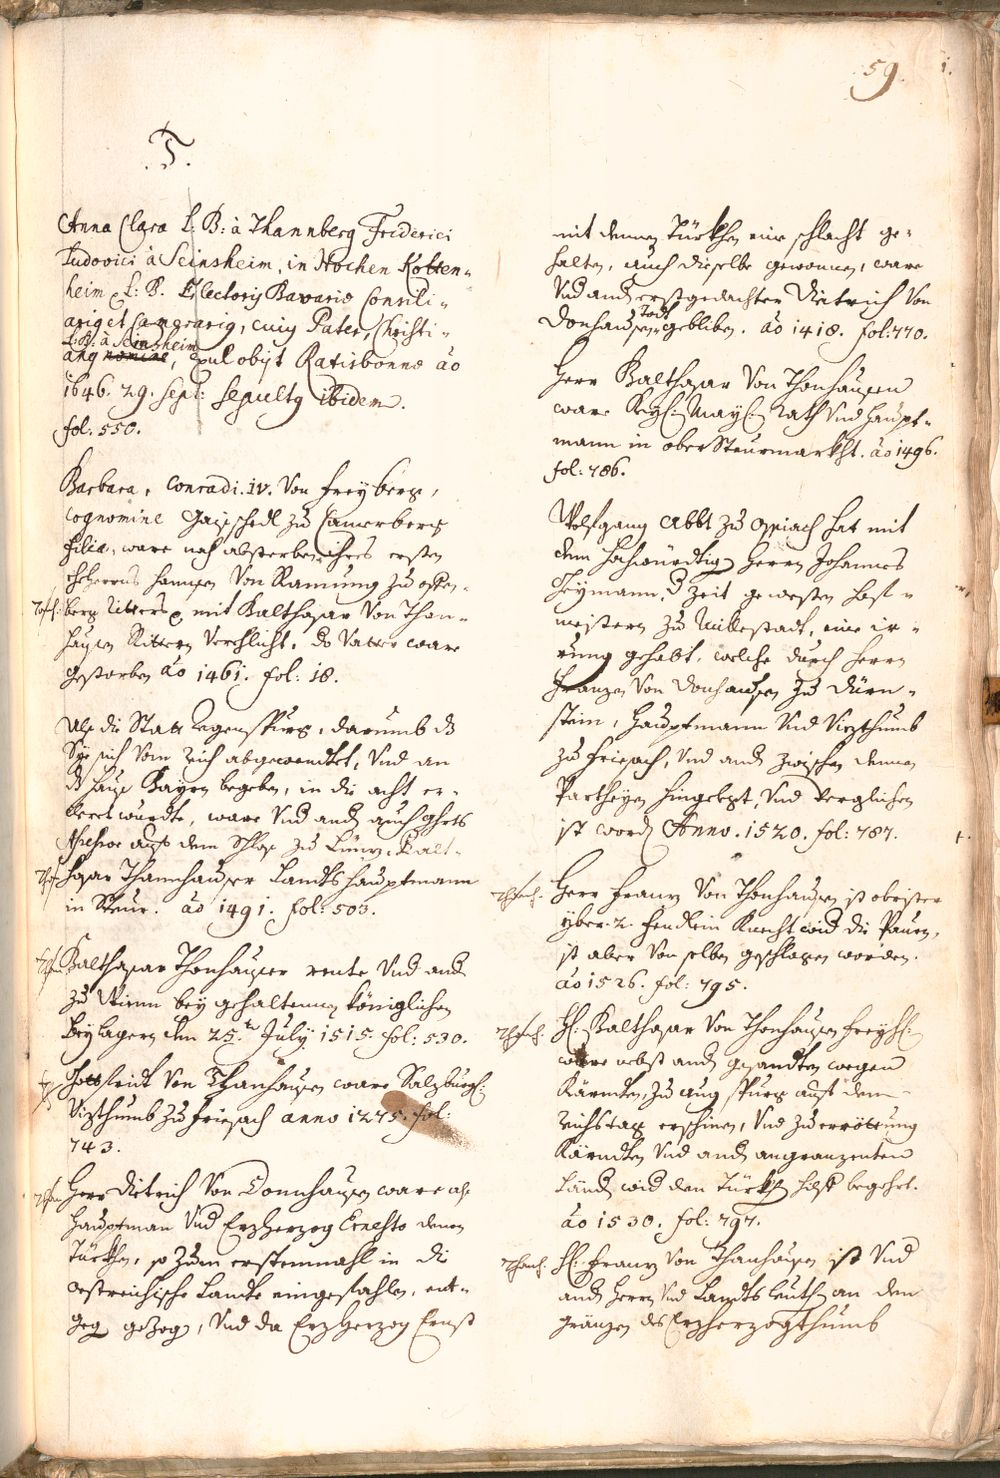 59.
T.
Anna Clara L: B: à Thannberg Friderici
Ludovici à Seinsheim, in Hochen Kotten=
heim L: B. Electoris Bavariæ Consili=
arij et Camerarij, cuius Pater, Christi=
L: B: à Seinsheim
anus nomine, exul obijt Ratisbonnæ ao
1646. 29. Sept: sepultus ibidem.
fol: 550.
Barbara, Conradi. IV. Von Freyberg,
cognomine zu Camerberg
filia, ware nach absterben ihres ersten
eheherrns Hannsen Von Ramung zu
berg Ritters mit Balthasar Von Than=
hausen Rittern Verehlicht, Vatter ware
gestorben ao 1461. fol: 18.
Als die Statt Regenspurg, darumb ds
Sye sich Vom Reich abgewendtet, Vnd an
ds Haus Bayrn begeben, in die acht er=
kleret wurdte, ware Vnd andr auch
aus dem Schloss zu Balt=
hasar Thannhauser Landtshauptmann
in Steur. ao 1491. fol: 503.
Balthasar Thonhauser rente Vnd andr
zu Wienn bey gehaltenen königlichen
Beylagern den 25.ten July 1515. fol: 530.
Gottfridt Von Thanhausen ware Salzburg:
Vizthumb zu Friesach anno 1275. fol:
743.
Herr Dietrich Von Donnhausen ware als
Hauptman Vnd Erzherzog Ernesto denen
Türkhen, so zum erstenmahl in die
oestreichische Lande eingefahlen, ent=
geg gezogen, Vnd da Erzherzog Ernst
mit denen Türkhen eine schlacht ge=
halten, auch dieselbe gewonnen, ware
Vnd andr erstgedachter Dietrich Von
Todt
Donhausen gebliben. ao 1418. fol: 770.
Herr Balthasar Von Thonhausen
ware Keys: May: Rath Vnd Haupt=
mann in ober Steurmarkht. ao 1496.
fol: 786.
Wolfgang Abbt zu Ossiach hat mit
dem Hochwürdtig Herrn Johannes
Geymann, d Zeit gewesten Hoch=
meistern zu Millestadt, eine ir=
rung gehabt, welche durch Herrn
Franzen Von Donhausen zu Dürn=
stein, Hauptmann Vnd Vizthumb
zu Friesach, Vnd andr zwischen denen
Partheyen hingelegt, Vnd Verglichen
ist word Anno. 1520. fol: 787.
Herr Franz Von Thonhausen ist obrister
yber. 2. Fendlein Knecht wid die Pauren,
ist aber Von selben geschlagen worden.
ao 1526. fol: 795.
H: Balthasar Von Thonhausen Freyh:
ware nebst andr gesandten wegen
Kärndten, zu Augspurg auf dem
Reichstag erschinen, Vnd zu errötung
Kärndten Vnd andr angranzenten
Ländr wid den Türkh hilf begehrt.
ao 1530. fol: 797.
H: Franz Von Thanhausen ist Vnd
andr Herrn Vnd Landtsleuth an den
gränzen des Erzherzogthumb